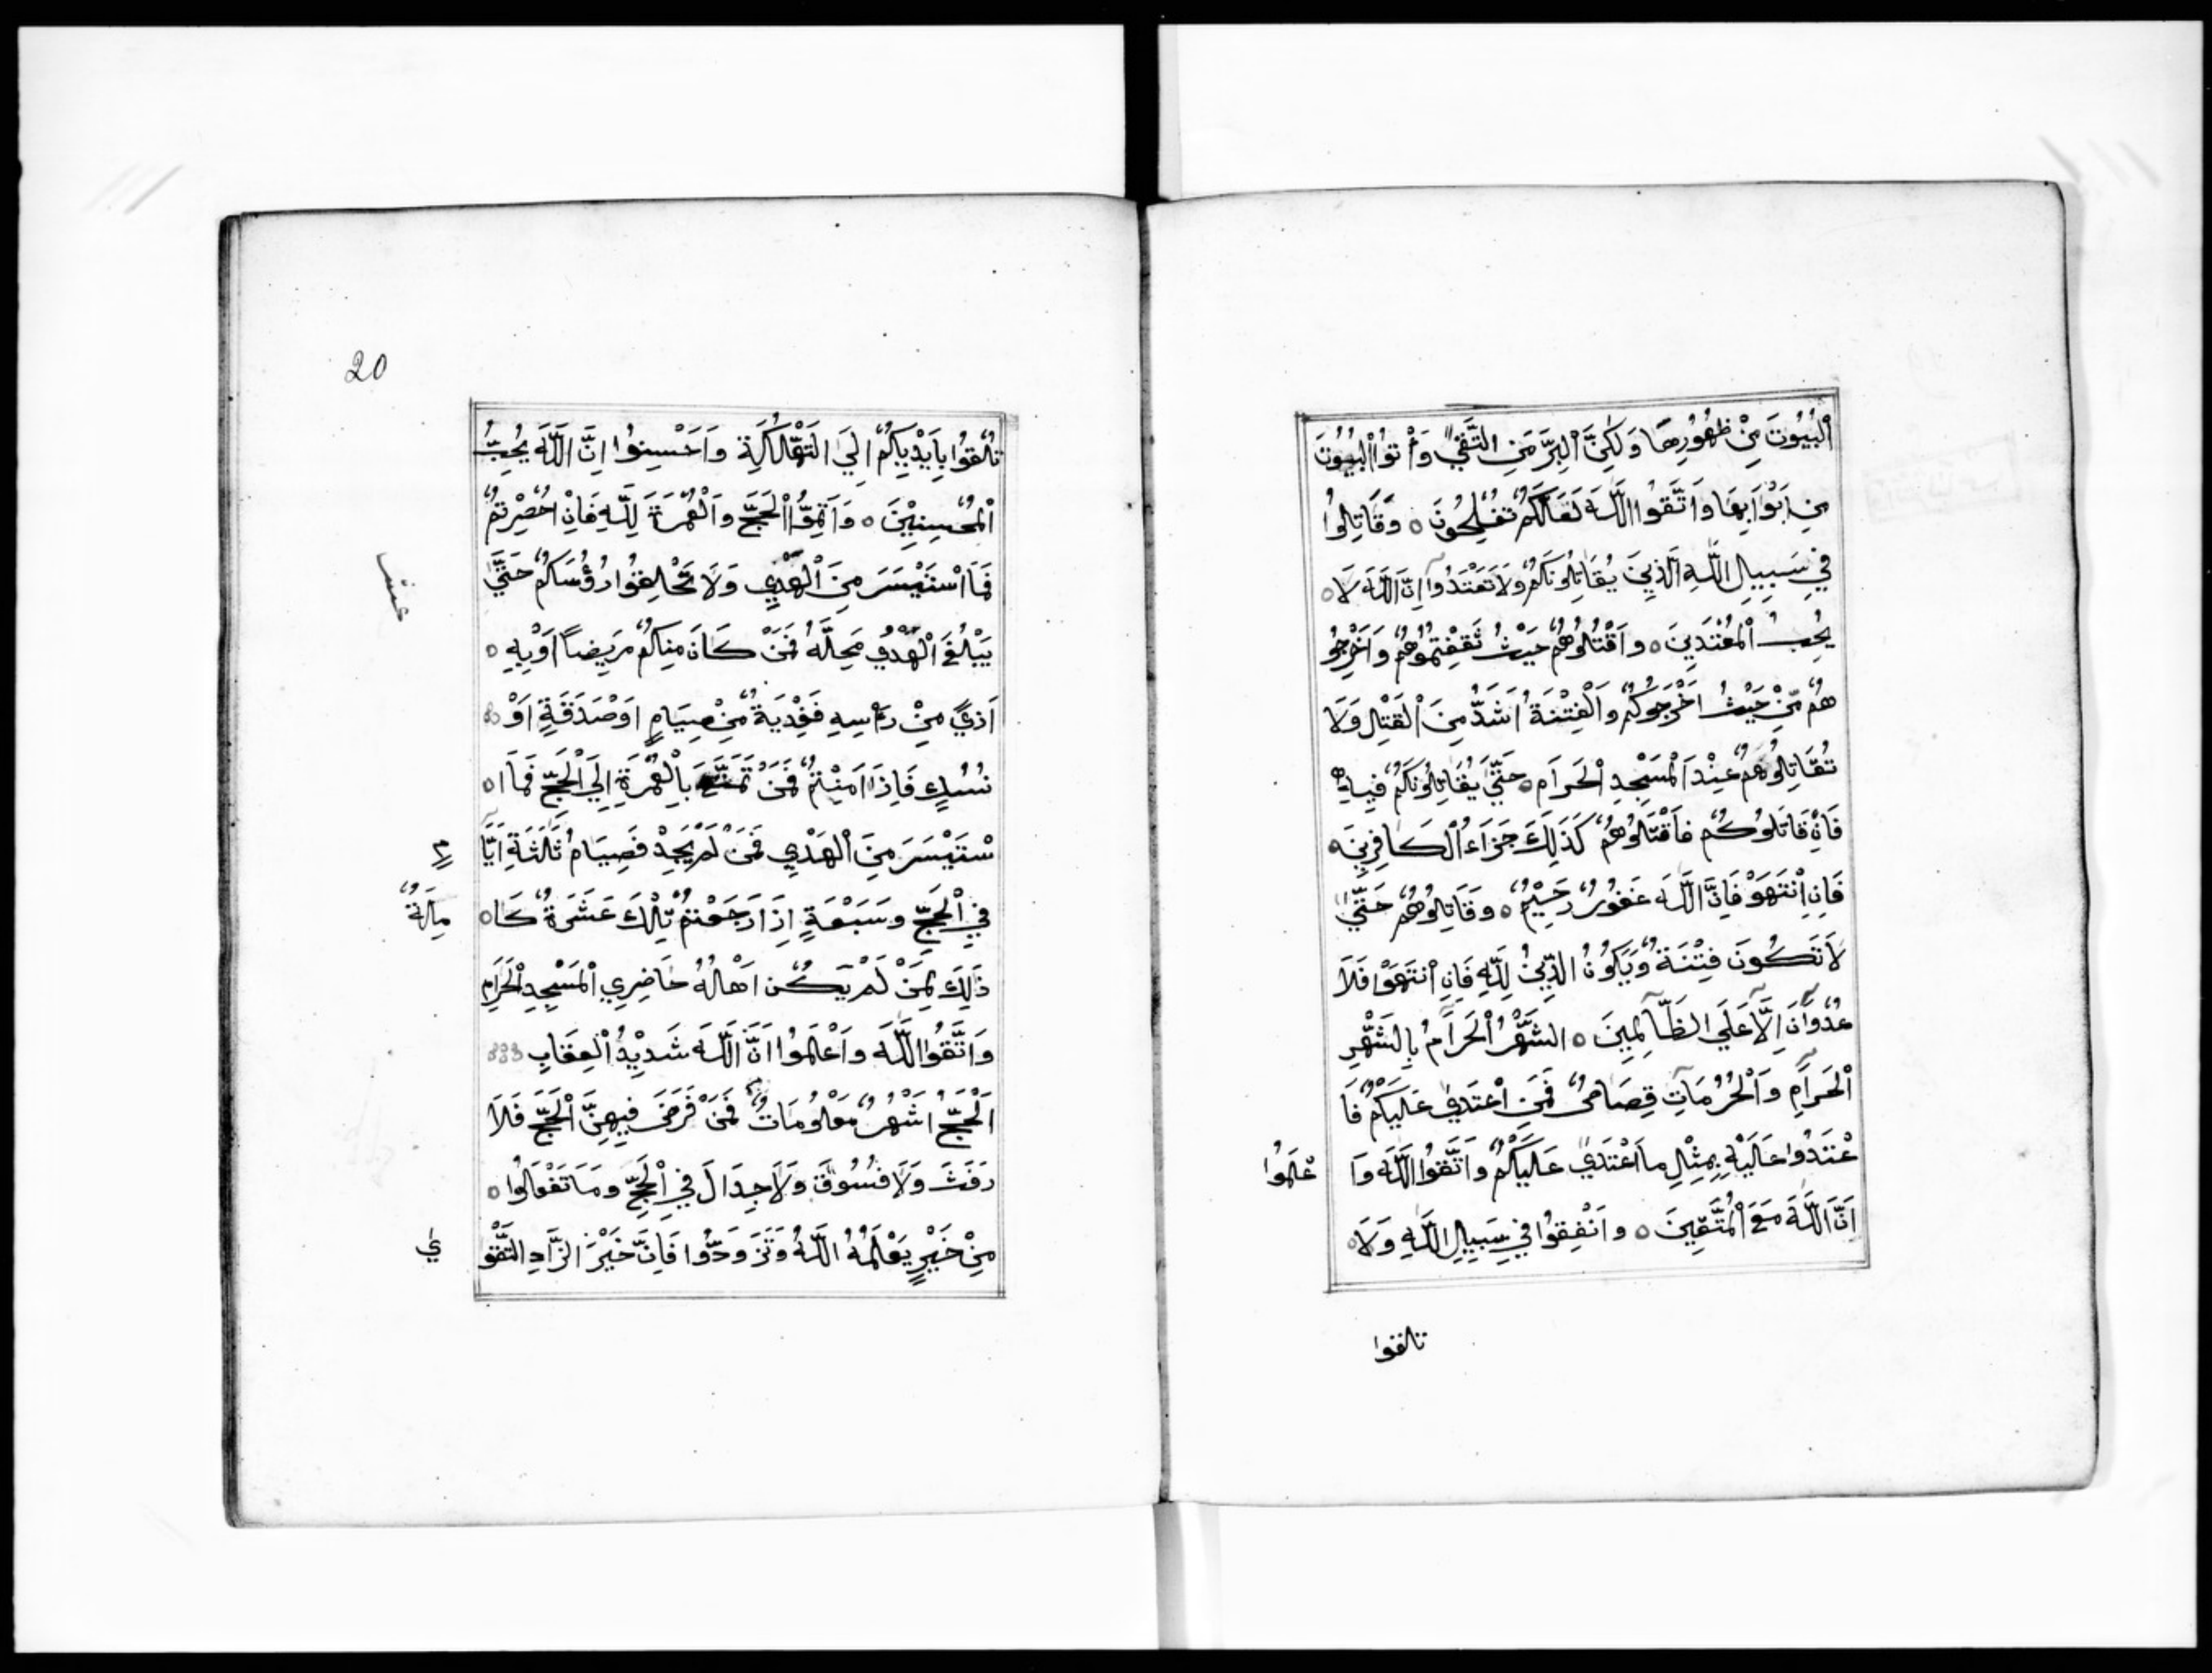 اْلبُيُوْتَ مِنْ ظُهُوْرِهَا وَلٰكِنَّ اْلبِرَّ مَنِ التَّقٰيْ وَأْتُوْا اْلبُيُوْتَ
مِنْ اَبْوَابِهَا وَاتَّقُوا اللّٰهَ لَعَلَّكُمْ تُفْلِحُوْنَ ٥ وَقَاتِلُوْا
فِيْ سَبِيْلِ اللّٰهِ الَّذِيْنَ يُقَاتِلُوْنَكُمْ وَلَا تَعْتَدُوْا اِنَّ اللّٰهَ لَا ٥
يُحِبُّ اْلمُعْتَدِيْنَ ٥ وَاقْتُلُوْهُمْ حَيْثُ ثَقِفْتُمُوْهُمْ وَاَخْرِجُوْ
هُمْ مِّنْ حَيْثُ اَخْرَجُوْكُمْ وَاْلفِتْنَةُ اَشَدُّ مِنَ اْلقَتْلِ وَلَا
تُقَاتِلُوْهُمْ عِنْدَ اْلمَسْجِدِ اْلحَرَامِ ٥ حَتّٰيْ يُقَاتِلُوْنَكُمْ فِيْهِ
فَاِنْ قَاتَلُوْكُمْ فَاقْتُلُوْهُمْ كَذٰلِكَ جَزَاءُ اْلكَافِرِيْنَ ٥
فَاِنِ انْتَهَوْ فَاِنَّ اللّٰهَ غَفُوْرٌ رَحِيْمٌ ٥ وَقَاتِلُوْهُمْ حَتّٰيْ
لَا تَكُوْنَ فِتْنَةٌ وَيَكُوْنُ الدِّيْنُ لِلّٰهِ فَاِنِ انْتَهَوْا فَلَا
عُدْوَانَ اِلَّا عَلَي الظَّالِمِيْنَ ٥ الشَّهْرُ اْلحَرَامُ بِالشَّهْرِ
اْلحَرَامِ وَاْلحُرُمَاتِ قِصَاصٌ فَمَنِ اعْتَدٰيْ عَلَيْكُمْ فَا
عْتَدُوْا عَلَيْهِ بِمِثْلِ مَا اعْتَدٰيْ عَلَيْكُمْ وَاتَّقُوا اللّٰهَ وَا
عْلَمُوْا
اَنَّ اللّٰهَ مَعَ اْلمُتَّقِيْنَ ٥ وَاَنْفِقُوْا فِيْ سَبِيْلِ اللّٰهِ وَلَا ٥
تلقوا
20
تُلْقُوْا بِاَيْدِيْكُمْ اِلَي التَّهْلُكَةِ وَاَحْسِنُوْا اِنَّ اللّٰهَ يُحِبُّ
اْلمُحْسِنِيْنَ ٥ وَاَتِمُّوا اْلحَجَّ وَاْلعُمْرَةَ لِلّٰهِ فَاِنْ اُحْصِرْتُمْ
فَمَا اسْتَيْسَرَ مِنَ اْلهَدْيِ وَلَا تَحْلِقُوْا رُؤُسَكُمْ حَتّٰيْ
يَبْلُغَ اْلهَدْيُ مَحِلَّهُ فَمَنْ كَانَ مِنْكُمْ مَرِيْضًا اَوْ بِهِ ٥
اَذيً مِنْ رَأْسِهِ فَفِدْيَةٌ مِنْ صِيَامٍ اَوْ صَدَقَةٍ اَوْ
نُسُكٍ فَاِذَا اَمِنْتُمْ فَمَنْ تَمَتَّعَ بِاْلعُمْرَةِ اِلَي اْلحَجِّ فَمَا ا ٥
سْتَيْسَرَ مِنَ اْلهَدْيِ فَمَنْ لَمْ يَجِدْ فَصِيَامُ ثَلٰثَةِ اَيَّا
مٍ
فِي اْلحَجِّ وَسَبْعَةٍ اِذَا رَجَعْتُمْ تِلْكَ عَشَرَةٌ كَا ٥
مِلَةٌ
ذٰلِكَ لِمَنْ لَمْ يَكُنْ اَهْلُهُ حَاضِرِي اْلمَسْجِدِ اْلحَرَامِ
وَاتَّقُوا اللّٰهَ وَاعْلَمُوْا اَنَّ اللّٰهَ شَدِيْدُ اْلعِقَابِ
اَلْحَجُّ اَشْهُرٌ مَعْلُوْمَاتٌ فَمَنْ فَرَضَ فِيْهِنَّ اْلحَجَّ فَلَا
رَفَثَ وَلَا فُسُوْقَ وَلَا جِدَالَ فِي اْلحَجِّ وَمَا تَفْعَلُوْا ٥
مِنْ خَيْرٍ يَعْلَمْهُ اللّٰهُ وَتَزَوَّدُوْا فَاِنَّ خَيْرَ الزَّادِ التَّقْوٰ
ي